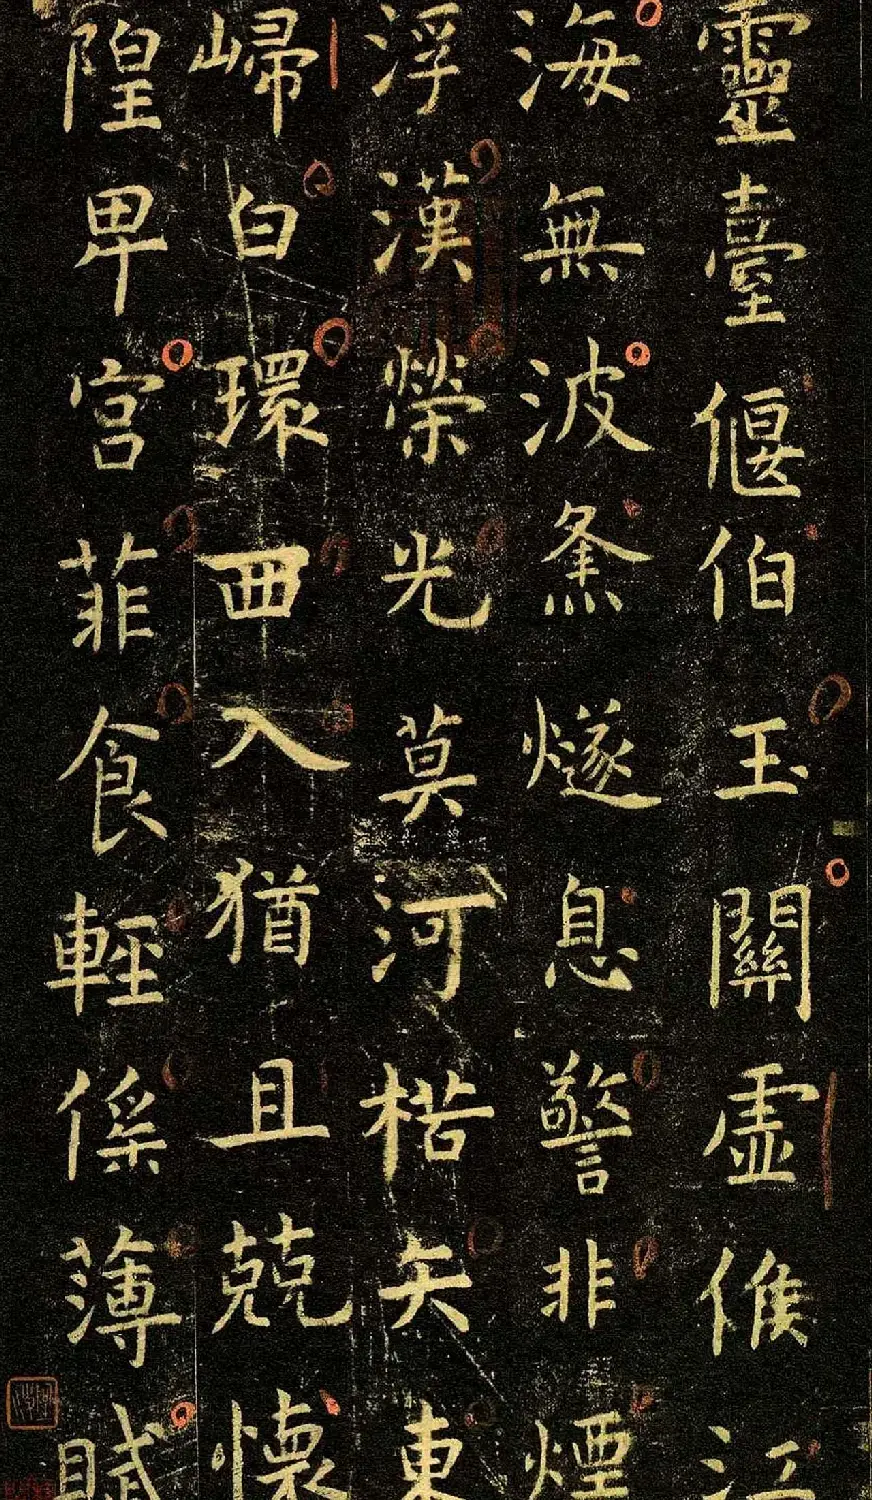 靈臺偃伯玉關虛候江
海無波㷭燧息警非煙
浮漢榮光莫河楛矢東
歸白環西入猶且兢懷
隍卑宮菲食輕傜薄賦